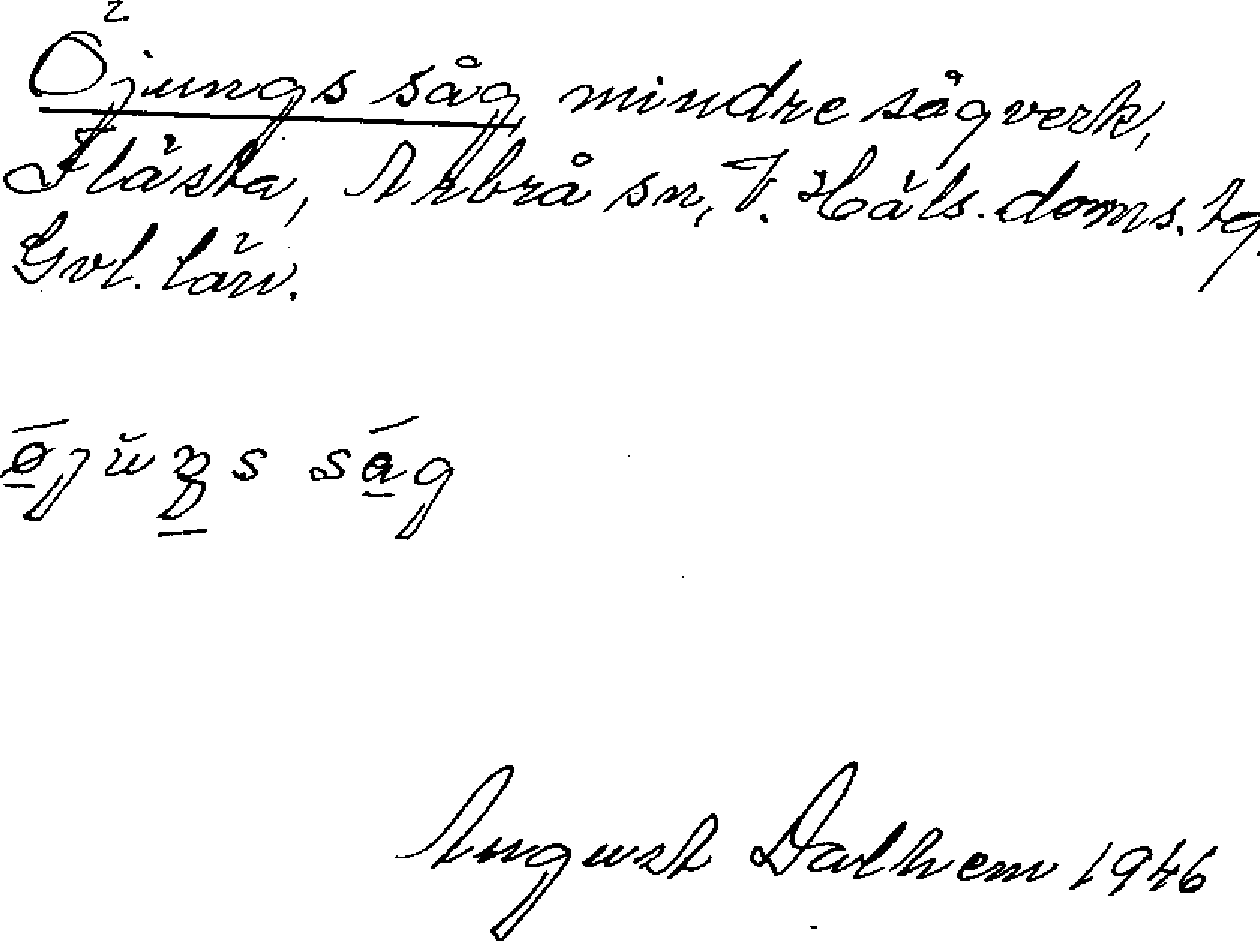 Öjungs såg, mindre sågverk,
Flästa, Arbrå sn, V. Häls. doms. tg.
Gvl. län.
såg
August Dalhem 1946